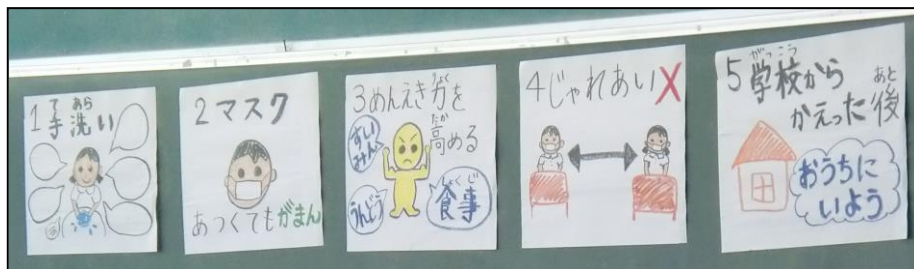 1手洗い
あら
2マスク
あつくてもがまん
3めんえき力を
りょく
高める
たか
すいみん
うんどう
食事
しょくじ
4じゃれあい✗
5学校から
がっこう
かえった後
あと
おうちに
いよう